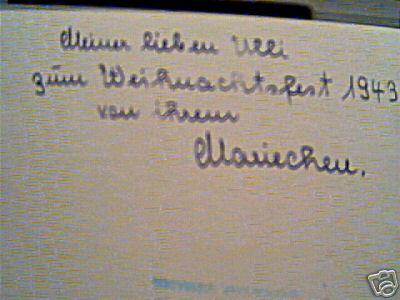 Meiner lieben Ulli
zum Weihnachtsfest 1943
von ihrem
Mariechen.